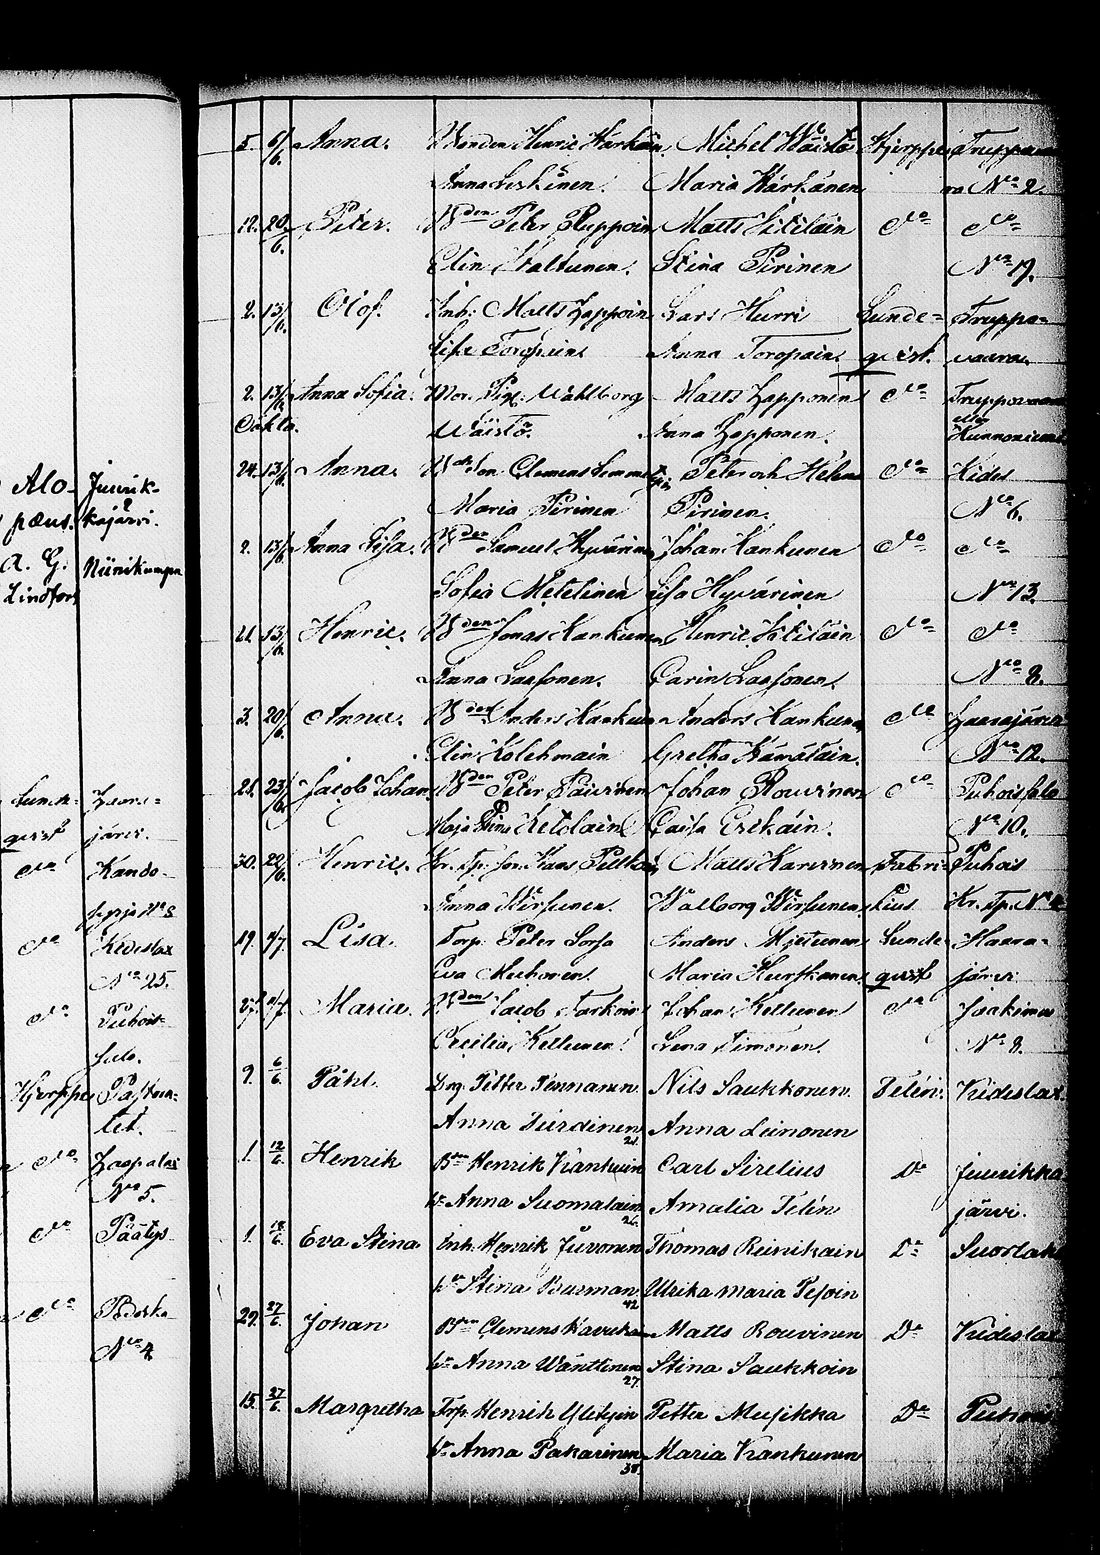 Alo- Junrik-
pæus. kajärvi.
A. G. Niinikumpu
Lindfors
Lunde- Haara-
qvist järvi.
do Kando-
syrja No 8
do Kideslax
No 25.
do Puhois-
salo.
Hjerppe
tet.
do
No 5.
do Päätys-
do
No 4
5. 6/6. Anna. Bonden Henric Härkän Michel Wäistö Hjerppe Truppawa-
Anna Leskinen. Maria Härkänen ra No 2.
12. 20/6. Peter. Bden Peter Ruppoin Matts Litiläin do do
Elin Waltunen. Stina Pirinen No 19.
2. 13/6. Olof. Inh: Matts Zappoin Lars Hurri Lunde- Truppo-
Lisa Toropain Anna Toropain. qvist. vaara.
2. 13/6. Anna Sofia. Mor. Pig. Wahlborg Matts Zapponen do Truppovaara
Oäkta. Wäistö. Anna Zapponen.
24. 13/6. Anna. Clemens Peter och Helena do Kides
Maria Pirinen Pirinen. No 6.
2. 13/6. Anna Lisa. Bden Samuel Hyvärin Johan Kankunen do do
Sofia Metelinen Lisa Hyvärinen No 13.
21. 13/6. Henric. Bden Jonas Kankunen Henric Litiläin do do
Anna Laasonen. Carin Laasonen. No 8.
3. 20/6. Anna. Bden Anders Kankun Anders Kankunen do Haarajärvi
Elin Kolehmain Gretha Hämäläin. No 12.
21. 23/6. Jacob Johan Bden Peter Päivinen Johan Rouvinen do Puhoissalo
Maja Stina Ketolain Caisa Eskäin. No 10.
30. 29/6. Henric. Matts Karvinen Fabri- Puhois
Anna Hirvonen. Walborg Hirvonen cius Kr. Tp. No
19. 1/7. Lisa. Torp. Peter Sorsa Anders Lunde- Haara-
Eva Muhonen. Maria Hurskanen qvist järvi
27. 2/7. Maria. Bden Jacob Tarkoin Johan Keltunen do Jaakima
Cecilia Keltunen. Lena Timonen. No 8.
9. 6/6. Påhl. Petter Pennanen. Nils Saukkonen. Telén. Kideslax.
Anna Tiirdinen 21. Anna Leinonen
1. 12/6. Henrik Bden Henrik Kankuin Carl Sirelius Do Junrikka
Hu Anna Suomalain 26. Amalia Telén järvi.
1. 18/6. Eva Stina Inh. Henrik Juvonen Thomas Reinikain Do Suorlaks
Hu Stina Burman 42. Ulrika Maria Pesoin
29. 27/6. Johan Bden Clemens Kavuka Matts Rouvinen Do Kideslax
Hu Anna Wänttinen 27. Stina Saukkoin
15. 27/6. Margretha Torp. Henrik Petter Musikka Do Puhois
Hu Anna Pakarinen 38. Maria Kankunen